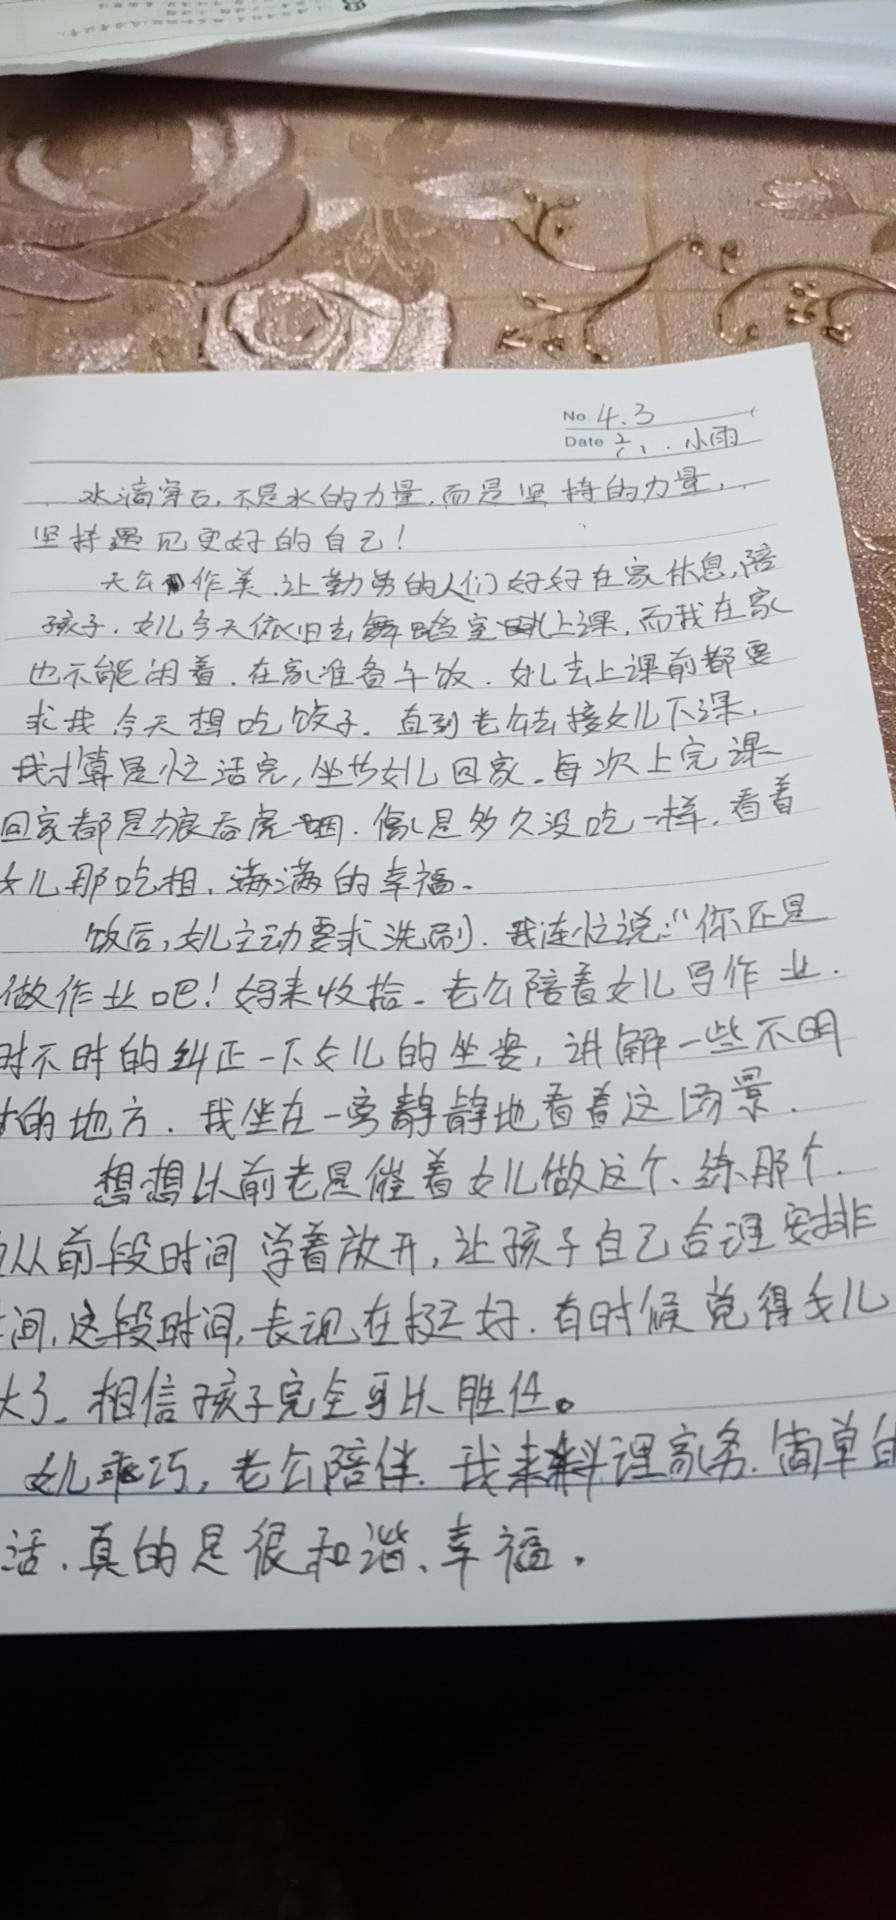 No 4.3
Date 六、小雨
水滴穿石,不是水的力量,而是坚持的力量,
坚持遇见更好的自己!
天公作美,让勤劳的人们好好在家休息,陪
孩子.女儿今天依旧去舞蹈室上课,而我在家
也不能闲着.在家准备午饭.女儿去上课前都要
求我今天想吃饺子.直到老公去接女儿下课,
我才算是忙活完,坐等女儿回家.每次上完课
回家都是狼吞虎咽.像是多久没吃一样,看着
女儿那吃相,满满的幸福.
饭后,女儿主动要求洗刷.我连忙说:"你还是
做作业吧!妈来收拾.老公陪着女儿写作业.
时不时的纠正一下女儿的坐姿,讲解一些不明
的地方.我坐在一旁静静地看着这场景.
想想以前老是催着女儿做这个、练那个.
从前段时间学着放开,让孩子自己合理安排
间,这段时间,表现在挺好.有时候觉得女儿
大了.相信孩子完全可以胜任。
女儿乖巧,老公陪伴.我来料理家务.简单的
活.真的是很和谐、幸福.